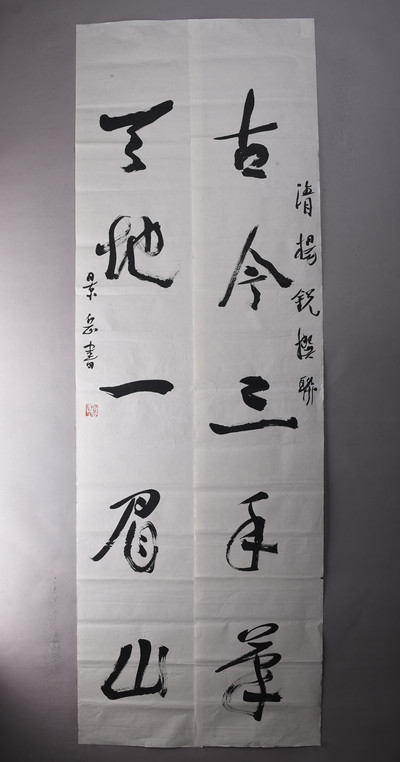 清楊銳撰聯
古今三手筆
天地一眉山
景岳書